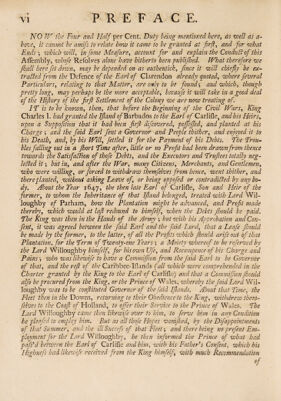 vi PREFACE.
NOW the Four and Half per Cent. Duty being mentioned here, as well as a-
bove, it cannot be amiss to relate how it came to be granted at first, and for what
Ends; which will, in some Measure, account for and explain the Conduct of this
Assembly, whose Resolves alone have hitherto been published. What therefore we
shall here set down, may be depended on as authentick, since it will chiefly be ex-
tracted from the Defence of the Earl of Clarendon already quoted, where several
Particulars, relating to that Matter, are only to be found; and which, though
pretty long, may perhaps be the more acceptable, because it will take in a good deal
of the History of the first Settlement of the Colony we are now treating of.
IT is to be known, then, that before the Beginning of the Civil Wars, King
Charles I. had granted the Island of Barbados to the Earl of Carlisle, and his Heirs,
upon a Supposition that it had been first discovered, possessed, and planted at his
Charge; and the said Earl sent a Governor and People thither, and enjoyed it to
his Death, and, by his Will, settled it for the Payment of his Debts. The Trou-
bles falling out in a short Time after, little or no Profit had been drawn from thence
towards the Satisfaction of those Debts, and the Executors and Trustees totally neg-
lected it; but in, and after the War, many Citizens, Merchants, and Gentlemen,
who were willing, or forced to withdraw themselves from hence, went thither, and
there planted, without asking Leave of, or being opposed or contradicted by any bo-
dy. About the Year 1647, the then late Earl of Carlisle, Son and Heir of the
former, to whom the Inheritance of that Island belonged, treated with Lord Wil-
loughby of Parham, how the Plantation might be advanced, and Profit made
thereby, which would at last redound to himself, when the Debts should be paid.
The King was then in the Hands of the Army; but with his Approbation and Con-
sent, it was agreed between the said Earl and the said Lord, that a Lease should
be made by the former, to the latter, of all the Profits which should arise out of that
Plantation, for the Term of Twenty-one Years; a Moiety whereof to be reserved by
the Lord Willoughby himself, for his own Use, and Recompence of his Charge and
Pains; who was likewise to have a Commission from the said Earl to be Governor
of that, and the rest of the Caribbee-Islands (all which were comprehended in the
Charter granted by the King to the Earl of Carlisle;) and that a Commission should
also be procured from the King, or the Prince of Wales, whereby the said Lord Wil-
loughby was to be constituted Governor of the said Islands. About that Time, the
Fleet then in the Downs, returning to their Obedience to the King, withdrew them-
selves to the Coast of Holland, to offer their Service to the Prince of Wales. The
Lord Willoughby came then likewise over to him, to serve him in any Condition
he pleased to employ him. But as all those Hopes vanished, by the Disappointments
of that Summer, and the ill Success of that Fleet; and there being no present Em-
ployment for the Lord Willoughby, he then informed the Prince of what had
pass'd between the Earl of Carlisle and him, with his Father's Consent, which his
Highness had likewise received from the King himself, with much Recommendation
of